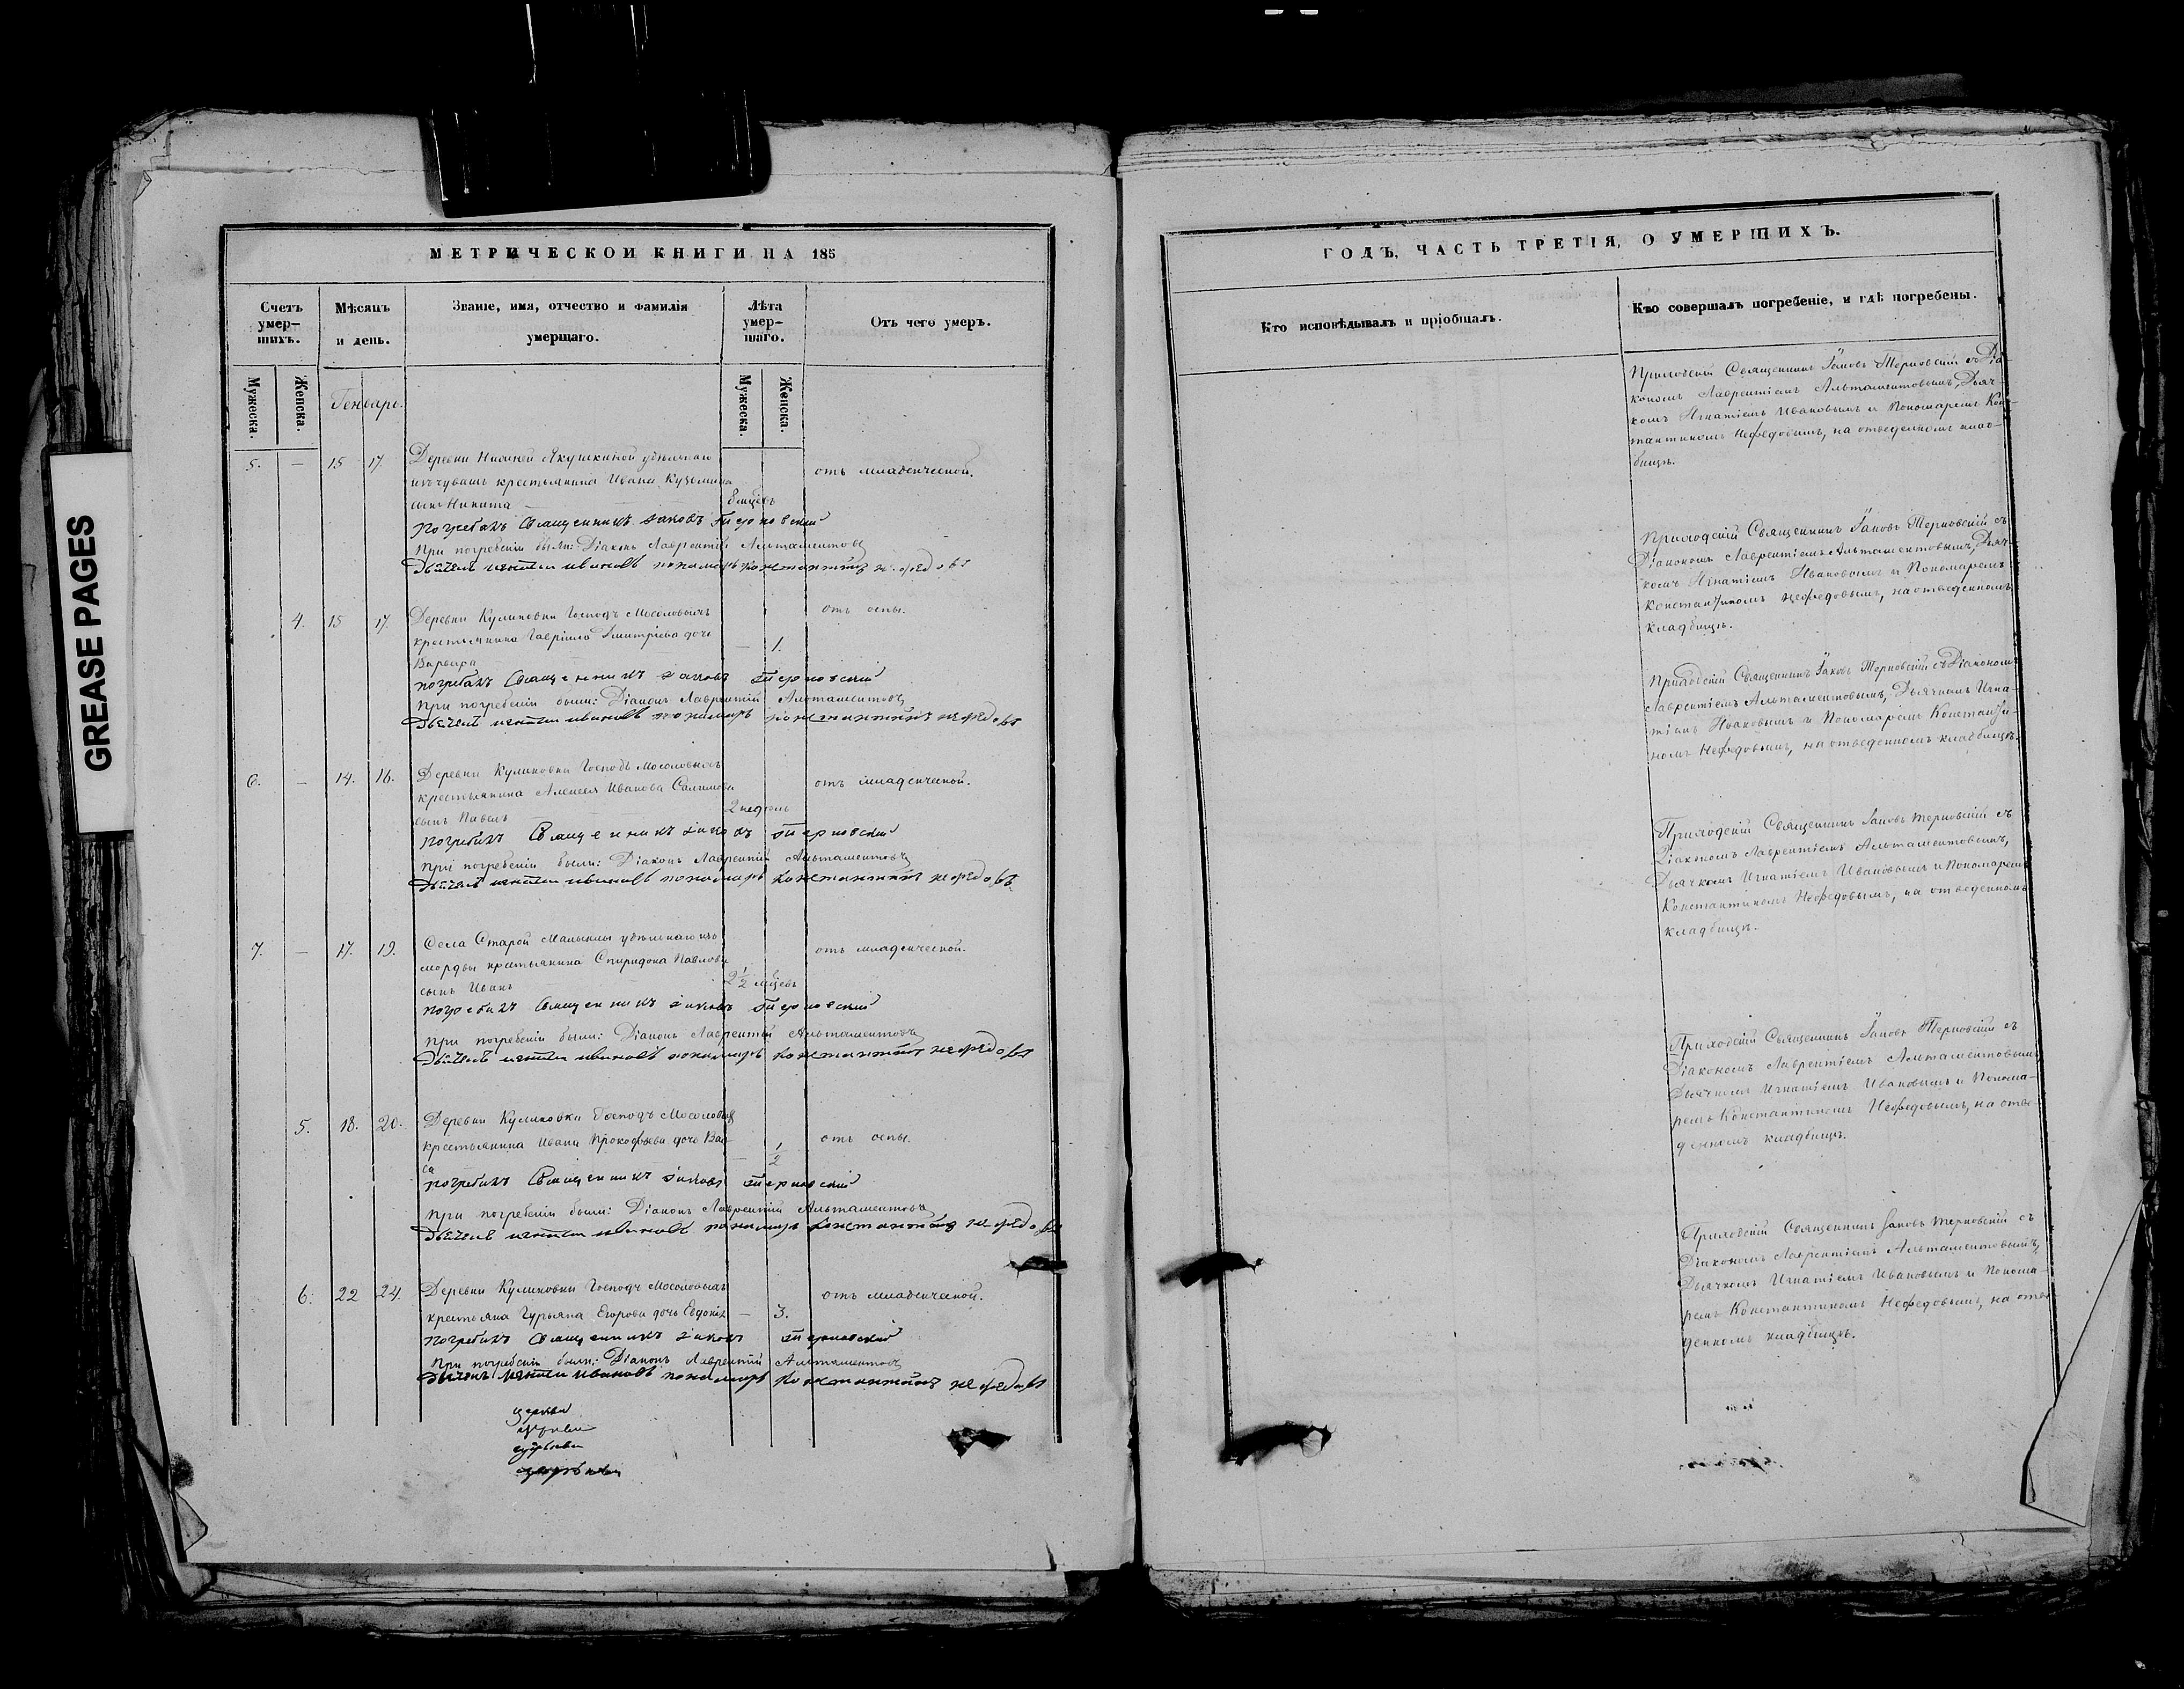 GREASE PAGES
МЕТРИЧЕСКОЙ КНИГИ НА 185
Счетъ умер-шихъ.
Мѣсяцъ и день.
Званіе, имя, отчество и фамилія умершаго.
Лѣта умер-шаго.
Отъ чего умеръ.
Мужеска.
Женска.
Мужеска.
Женска.
Генварь.
5. — 15 17. Деревни Нижней Якушкиной удѣльнаго
изъ чувашъ крестьянина Ивана Кузьмина
сынъ Никита
8 мцевъ
отъ младенческой.
Погребалъ Священникъ Іаковъ Терновскій
При погребеніи были: Діаконъ Лаврентій Альтаментовъ
Дьячекъ Игнатій Ивановъ пономарь Константинъ Нефедовъ
4. 15 17. Деревни Куликовки Господъ Мосоловыхъ
крестьянина Гавріила Дмитріева дочь
Варвара
— 1.
отъ оспы.
погребалъ Священникъ Іаковъ Терновскій
При погребеніи были: Діаконъ Лаврентій Альтаментовъ
Дьячекъ Игнатій Ивановъ пономарь Константинъ Нефедовъ
6. — 14. 16. Деревни Куликовки Господъ Мосоловыхъ
крестьянина Алексея Иванова
сынъ Павелъ
2 недѣль
отъ младенческой.
погребалъ Священникъ Іаковъ Терновскій
при погребеніи были: Діаконъ Лаврентій Альтаментовъ
Дьячекъ Игнатій Ивановъ пономарь Константинъ Нефедовъ
7. — 17. 19. Села Старой Малыклы удѣльнаго изъ
морды крестьянина Спиридона Павлова
сынъ Иванъ
2 1/2 мцевъ
отъ младенческой.
погребалъ Священникъ Іаковъ Терновскій
при погребеніи были: Діаконъ Лаврентій Альтаментовъ
Дьячекъ Игнатій Ивановъ пономарь Константинъ Нефедовъ
5. 18. 20. Деревни Куликовки Господъ Мосоловыхъ
крестьянина Ивана Прокофьева дочь Вас
са
— 1/2
отъ оспы.
погребалъ Священникъ Іаковъ Терновскій
при погребеніи были: Діаконъ Лаврентій Альтаментовъ
Дьячекъ Игнатій Ивановъ пономарь Константинъ Нефедовъ
6. 22 24. Деревни Куликовки Господъ Мосоловыхъ
крестьяна Гурьяна Егорова дочь Евдокія — 3.
отъ младенческой.
погребалъ Священникъ Іаковъ Терновскій
при погребеніи были: Діаконъ Лаврентій Альтаментовъ
Дьячекъ Игнатій Ивановъ пономарь Константинъ Нефедовъ
церкви
ГОДЪ, ЧАСТЬ ТРЕТІЯ, О УМЕРШИХЪ.
Кто исповѣдывалъ и пріобщалъ.
Кто совершалъ погребеніе, и гдѣ погребены.
Приходскій Священникъ Іаковъ Терновскій съ Діа-
кономъ Лаврентіемъ Альтаментовымъ, Дьяч-
комъ Игнатіемъ Ивановымъ и Пономаремъ Конс-
тантиномъ Нефедовымъ, на отведенномъ клад-
бищѣ.
Приходскій Священникъ Іаковъ Терновскій съ
Діакономъ Лаврентіемъ Альтаментовымъ, Дьяч-
комъ Игнатіемъ Ивановымъ и Пономаремъ
Константиномъ Нефедовымъ, на отведенномъ
кладбищѣ.
Приходскій Священникъ Іаковъ Терновскій съ Діакономъ
Лаврентіемъ Альтаментовымъ, Дьячкомъ Игна-
тіемъ Ивановымъ и Пономаремъ Константи-
номъ Нефедовымъ, на отведенномъ кладбищѣ.
Приходскій Священникъ Іаковъ Терновскій съ
Діакономъ Лаврентіемъ Альтаментовымъ,
Дьячкомъ Игнатіемъ Ивановымъ и Пономаремъ
Константиномъ Нефедовымъ, на отведенномъ
кладбищѣ.
Приходскій Священникъ Іаковъ Терновскій съ
Діакономъ Лаврентіемъ Альтаментовымъ
Дьячкомъ Игнатіемъ Ивановымъ и Понома-
ремъ Константиномъ Нефедовымъ, на отве-
денномъ кладбищѣ.
Приходскій Священникъ Іаковъ Терновскій съ
Діакономъ Лаврентіемъ Альтаментовымъ,
Дьячкомъ Игнатіемъ Ивановымъ и Понома-
ремъ Константиномъ Нефедовымъ, на отве-
денномъ кладбищѣ.